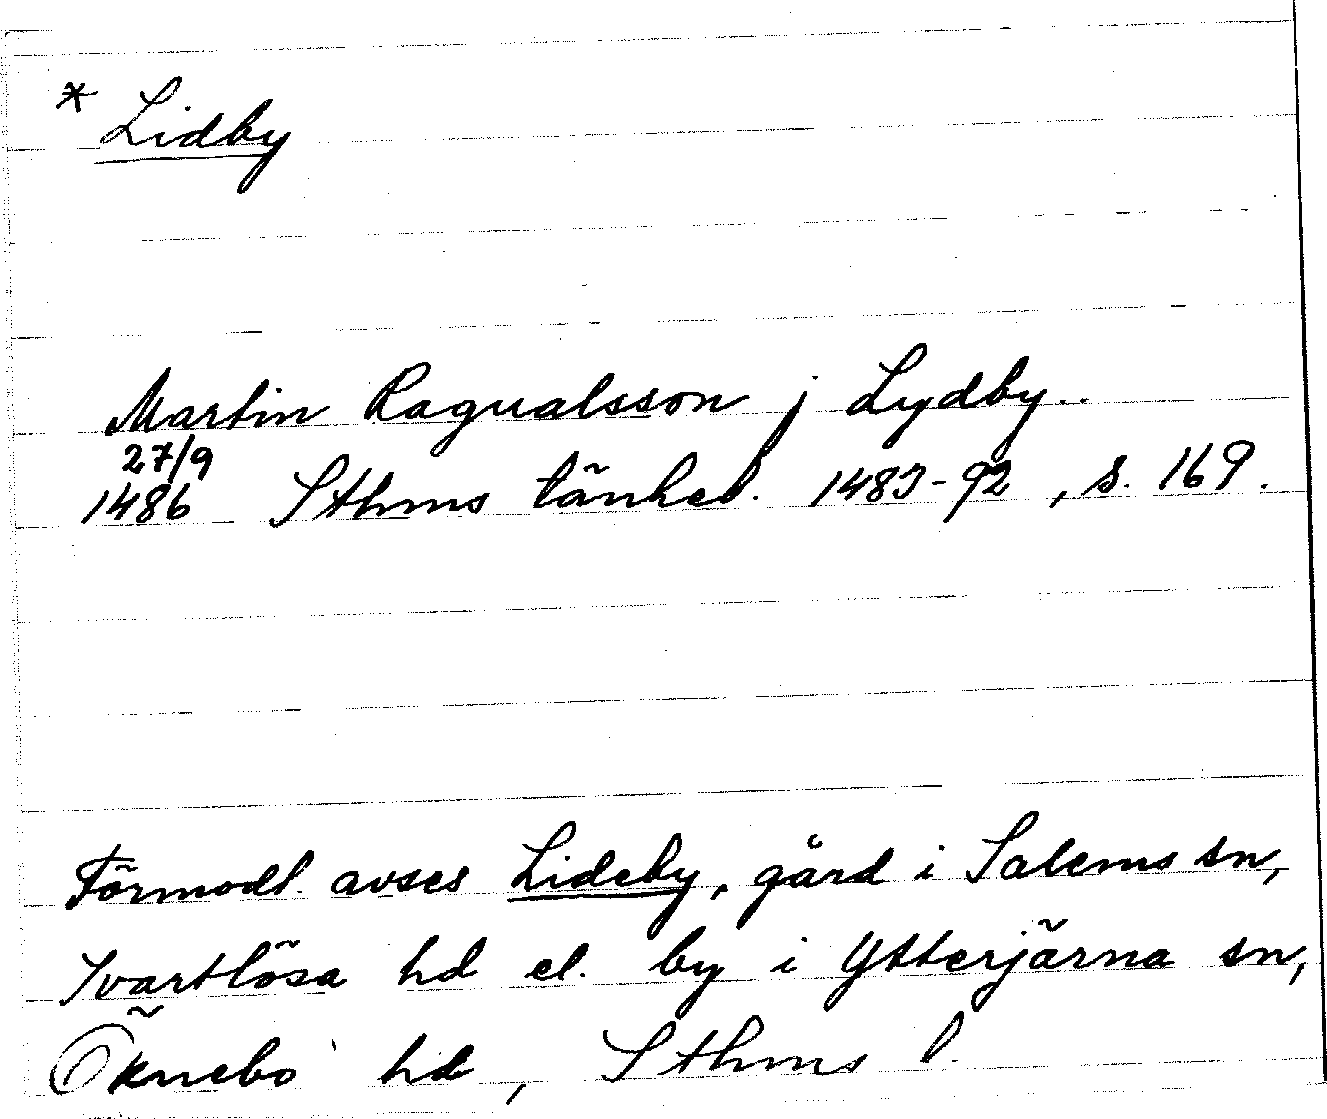 * Lidby
Martin Ragualsson j Lydby..
27/9
1486 Sthms tänkeb. 1483-92, s. 169.
Förmodl. avses Lideby, gård i Salems sn,
Svartlösa hd el. by i Ytterjärna sn,
Öknebo hd, Sthms l.